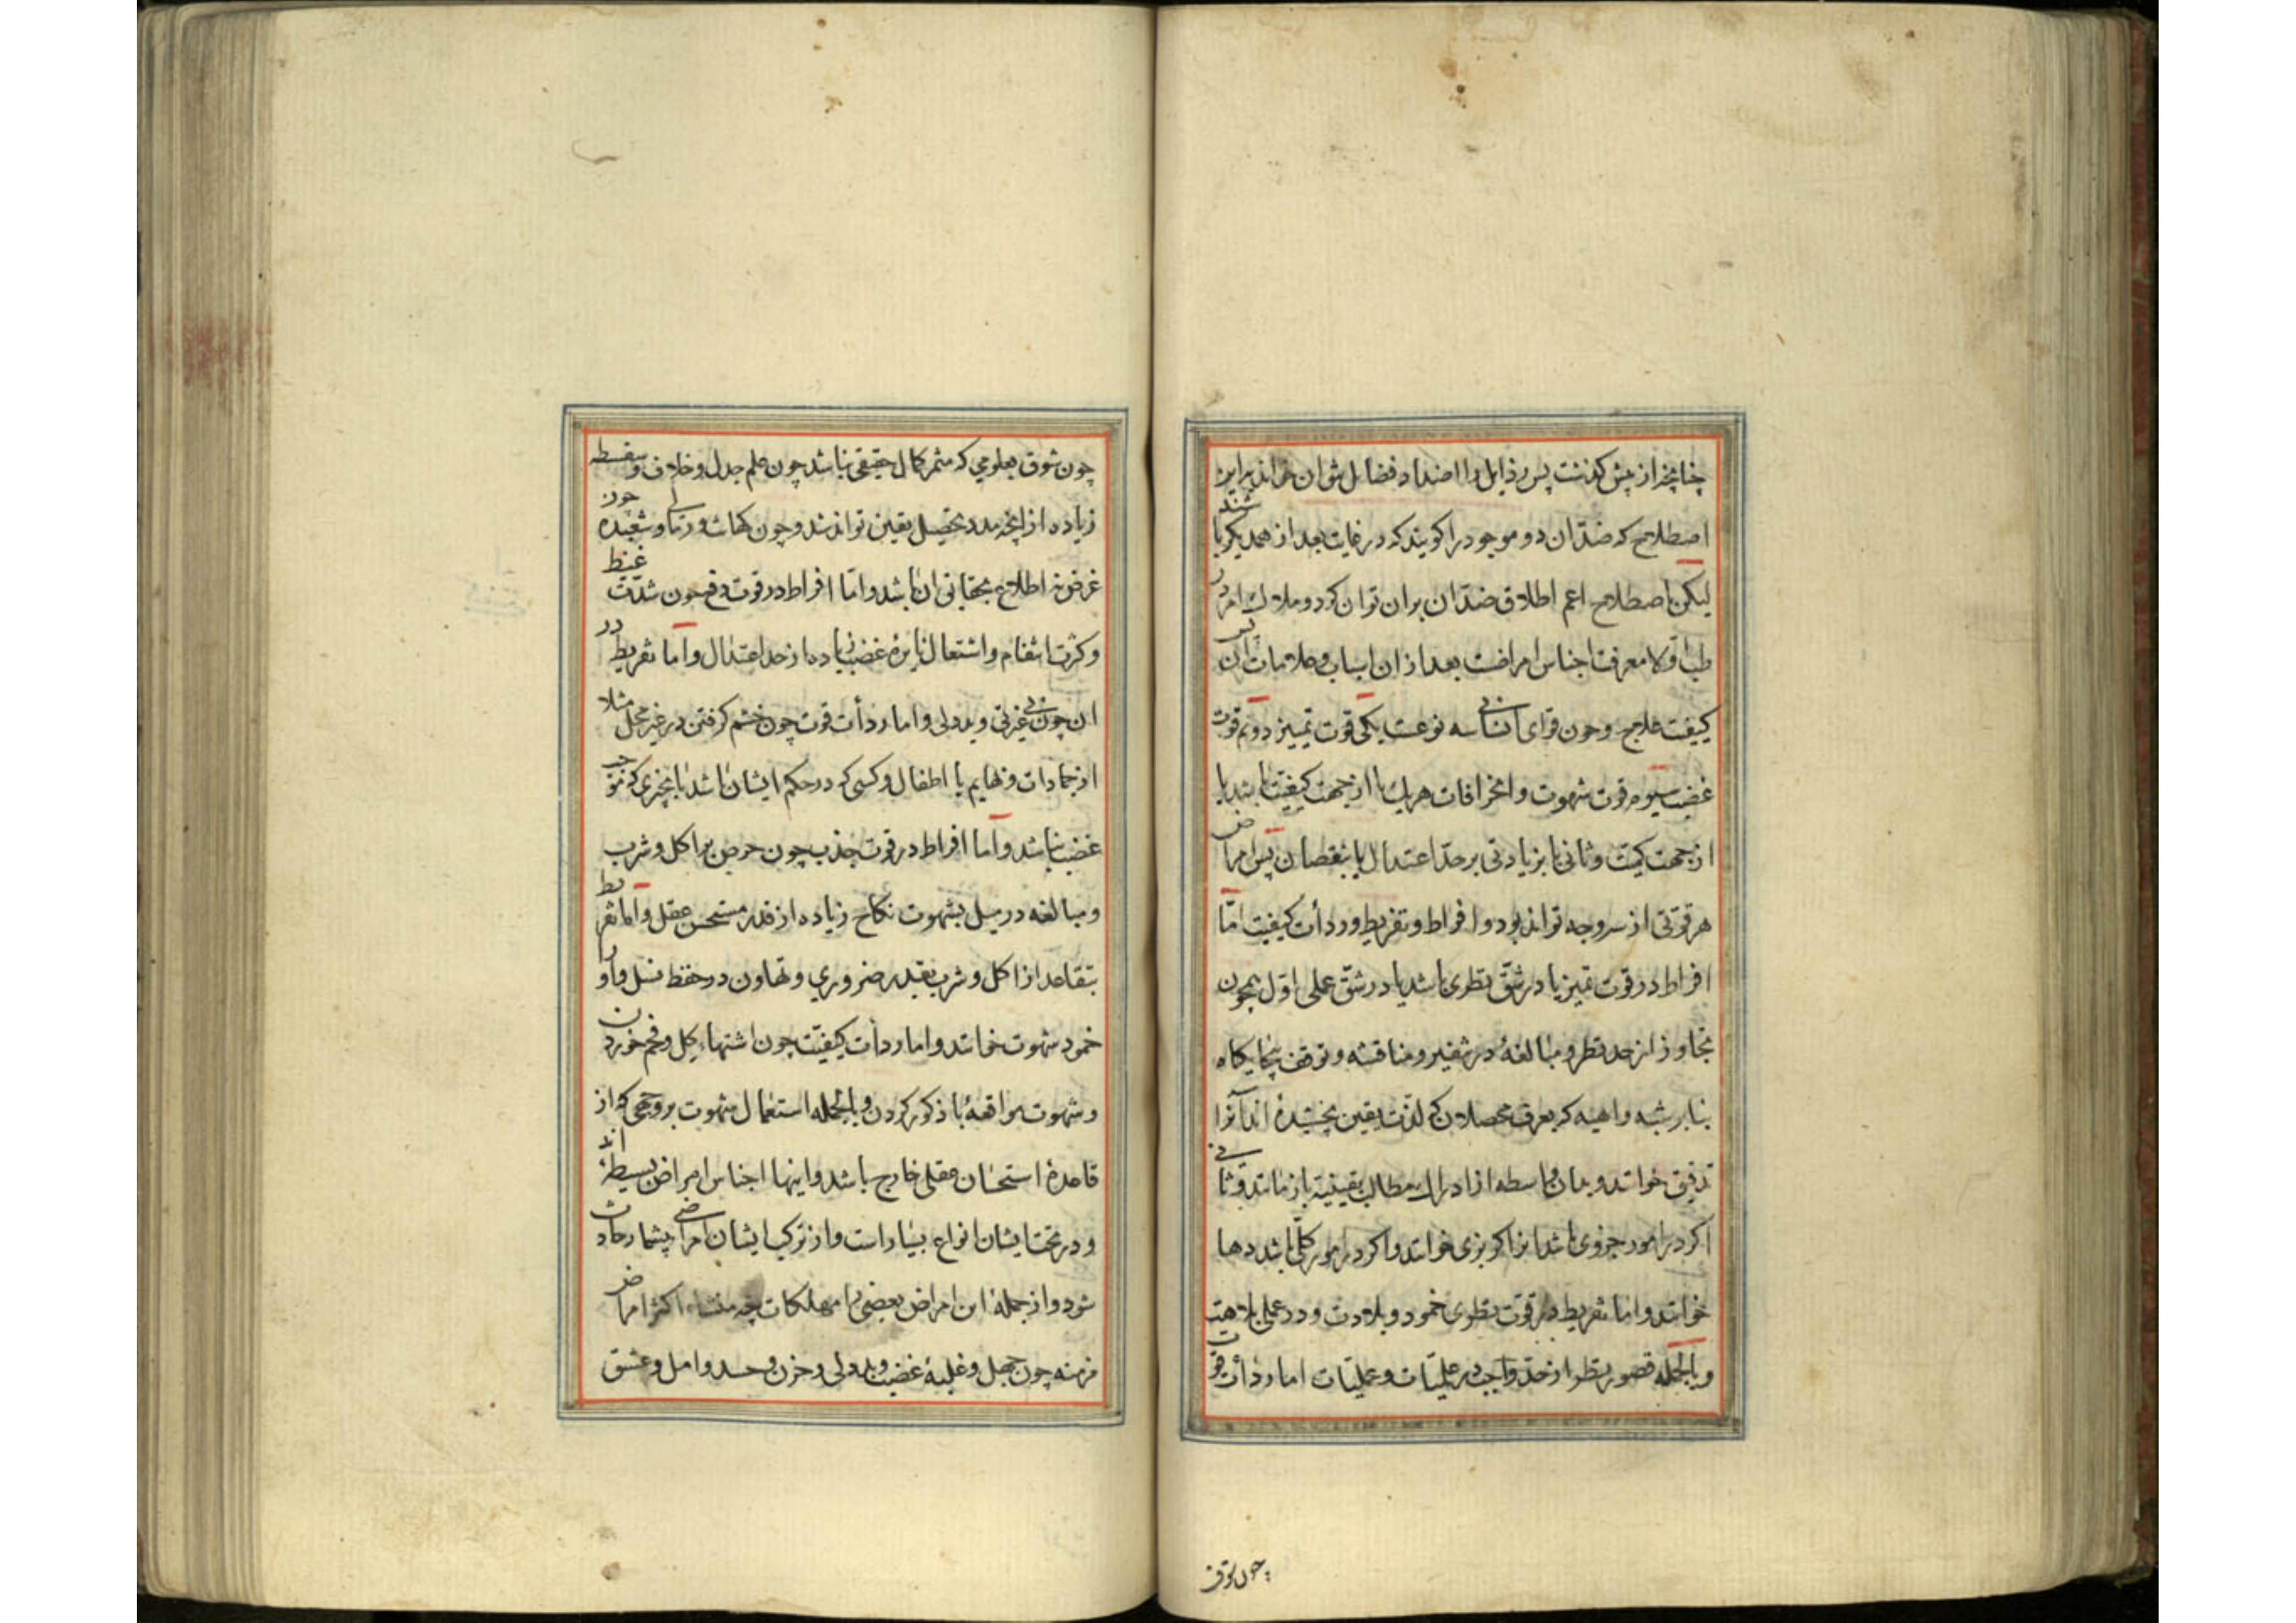 چنانچه از پیش گذشت پس رذایل را اضداد فضایل نتوان خواند بر این
اصطلاح که ضدّان دو موجود را گویند که در غایت بعد از همدیگر باشند
لیکن باصطلاح اعم اطلاق ضدّان بران توان کرد و ملاک امر در
طب اوّلا معرفت اجناس امراضست بعد از ان اسباب و علامات ان پس
کیفیت علاج و چون قوای انسانی سه نوعست یکی قوت تمیز دوّم قوت
غضب سیوم قوت شهوت و انحرافات هر یک یا از جهت کیفیت باشد یا
از جهت کمیت و ثانی یا بزیادتی بر حدّ اعتدال یا بنقصان پس امراض
هر قوّتی از سه وجه تواند بود و افراط و تفریط و ردأت کیفیت امّا
افراط در قوت تمیز یا در شقّ نظری باشد یا در شقّ عملی اوّل همچون
تجاوز از حد نظر و مبالغهٔ در تنقیر و مناقشه و توقف بیجایکاه
بنابر شبه واهیه که بعرف محصلان که لذّت یقین نچشیده اند آنرا
تدقیق خوانند و بدان واسطه از ادراک مطالب یقینیّه باز مانند و ثانی
اکر در امور جزوی باشد انرا کربزی خوانند و اکر در امور کلّی باشد دها
خوانند و اما تفریط در قوّت نظری خمود و بلادت و در عملی بلاهت
و بالجمله قصور نظر از حدّ واجب در علمیّات و عملیّات اما ردأت قوت
چون شوق
چون شوق بعلومی که مثمر کمال حقیقی نباشد چون علم جدل و خلاف و سفسطه
زیاده از انچه مدد تحصیل یقین تواند شد و چون کهانت و رمل و شعبده چون
غرض نه اطلاع بحقایق ان باشد و امّا افراط در قوت دفع چون شدّت غیظ
و کثرت انتقام و اشتعال نایرهٔ غضب زیاده از حد اعتدال و اما تفریط در
ان چون بی غیرتی و بددلی و اما ردأت قوت چون خشم کرفتن در غیر محل مثلا
از جمادات و بهایم یا اطفال و کسی که در حکم ایشان باشد یا بچیزی که موجب
غضب نباشد و اما افراط در قوت جذب چون حرص بر اکل و شرب
و مبالغه در میل بشهوت نکاح زیاده از قدر مستحسن عقل و اما تفریط
بتقاعد از اکل و شرب بقدر ضروری و تهاون در حفظ نسل و او را
خمود شهوت خوانند و اما ردأت کیفیّت چون اشتهاء کل و فحم خوردن
و شهوت مواقعهٔ با ذکور کردن و بالجمله استعمال شهوت بر وجهی که از
قاعدهٔ استحسان عقلی خارج باشد و اینها اجناس امراض بسیطه اند
و در تحت ایشان انواع بسیار است و از ترکیب ایشان امراضی بیشمار حادث
شود و از جمله این امراض بعضی را مهلکات چه منشاء اکثر امراض
مزمنه چون جهل و غلبهٔ غضب و بددلی و حزن و حسد و امل و عشق